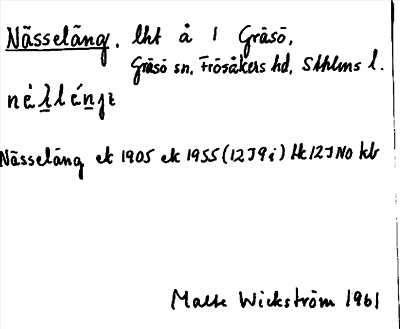 Nässeläng. lht å 1 Gräsö,
Gräsö sn, Frösåkers hd, Sthlms l.
Nässeläng ek 1905 ek 1955 (12J9i) Hk 12JNO kb
Malte Wickström 1961